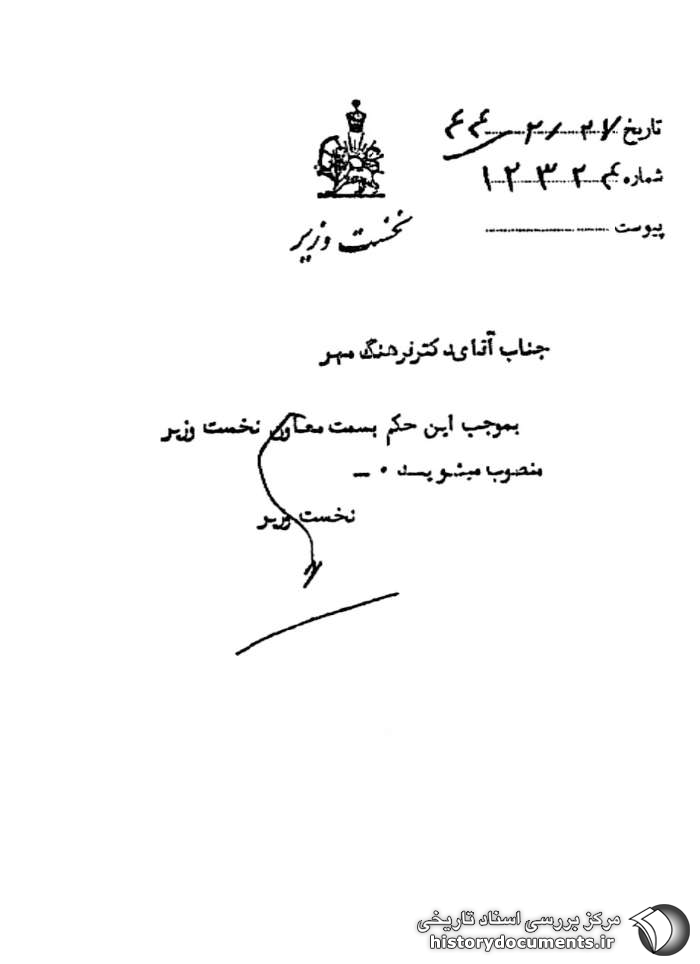 تاریخ ۴۴/۲/۲۷
شماره ۱۲۳۲۴
پیوست
نخست وزیر
جناب آقای دکتر فرهنگ مهر
بموجب این حکم بسمت معاون نخست وزیر
منصوب میشوید ۰ ـ
نخست وزیر
مرکز بررسی اسناد تاریخی
historydocuments.ir